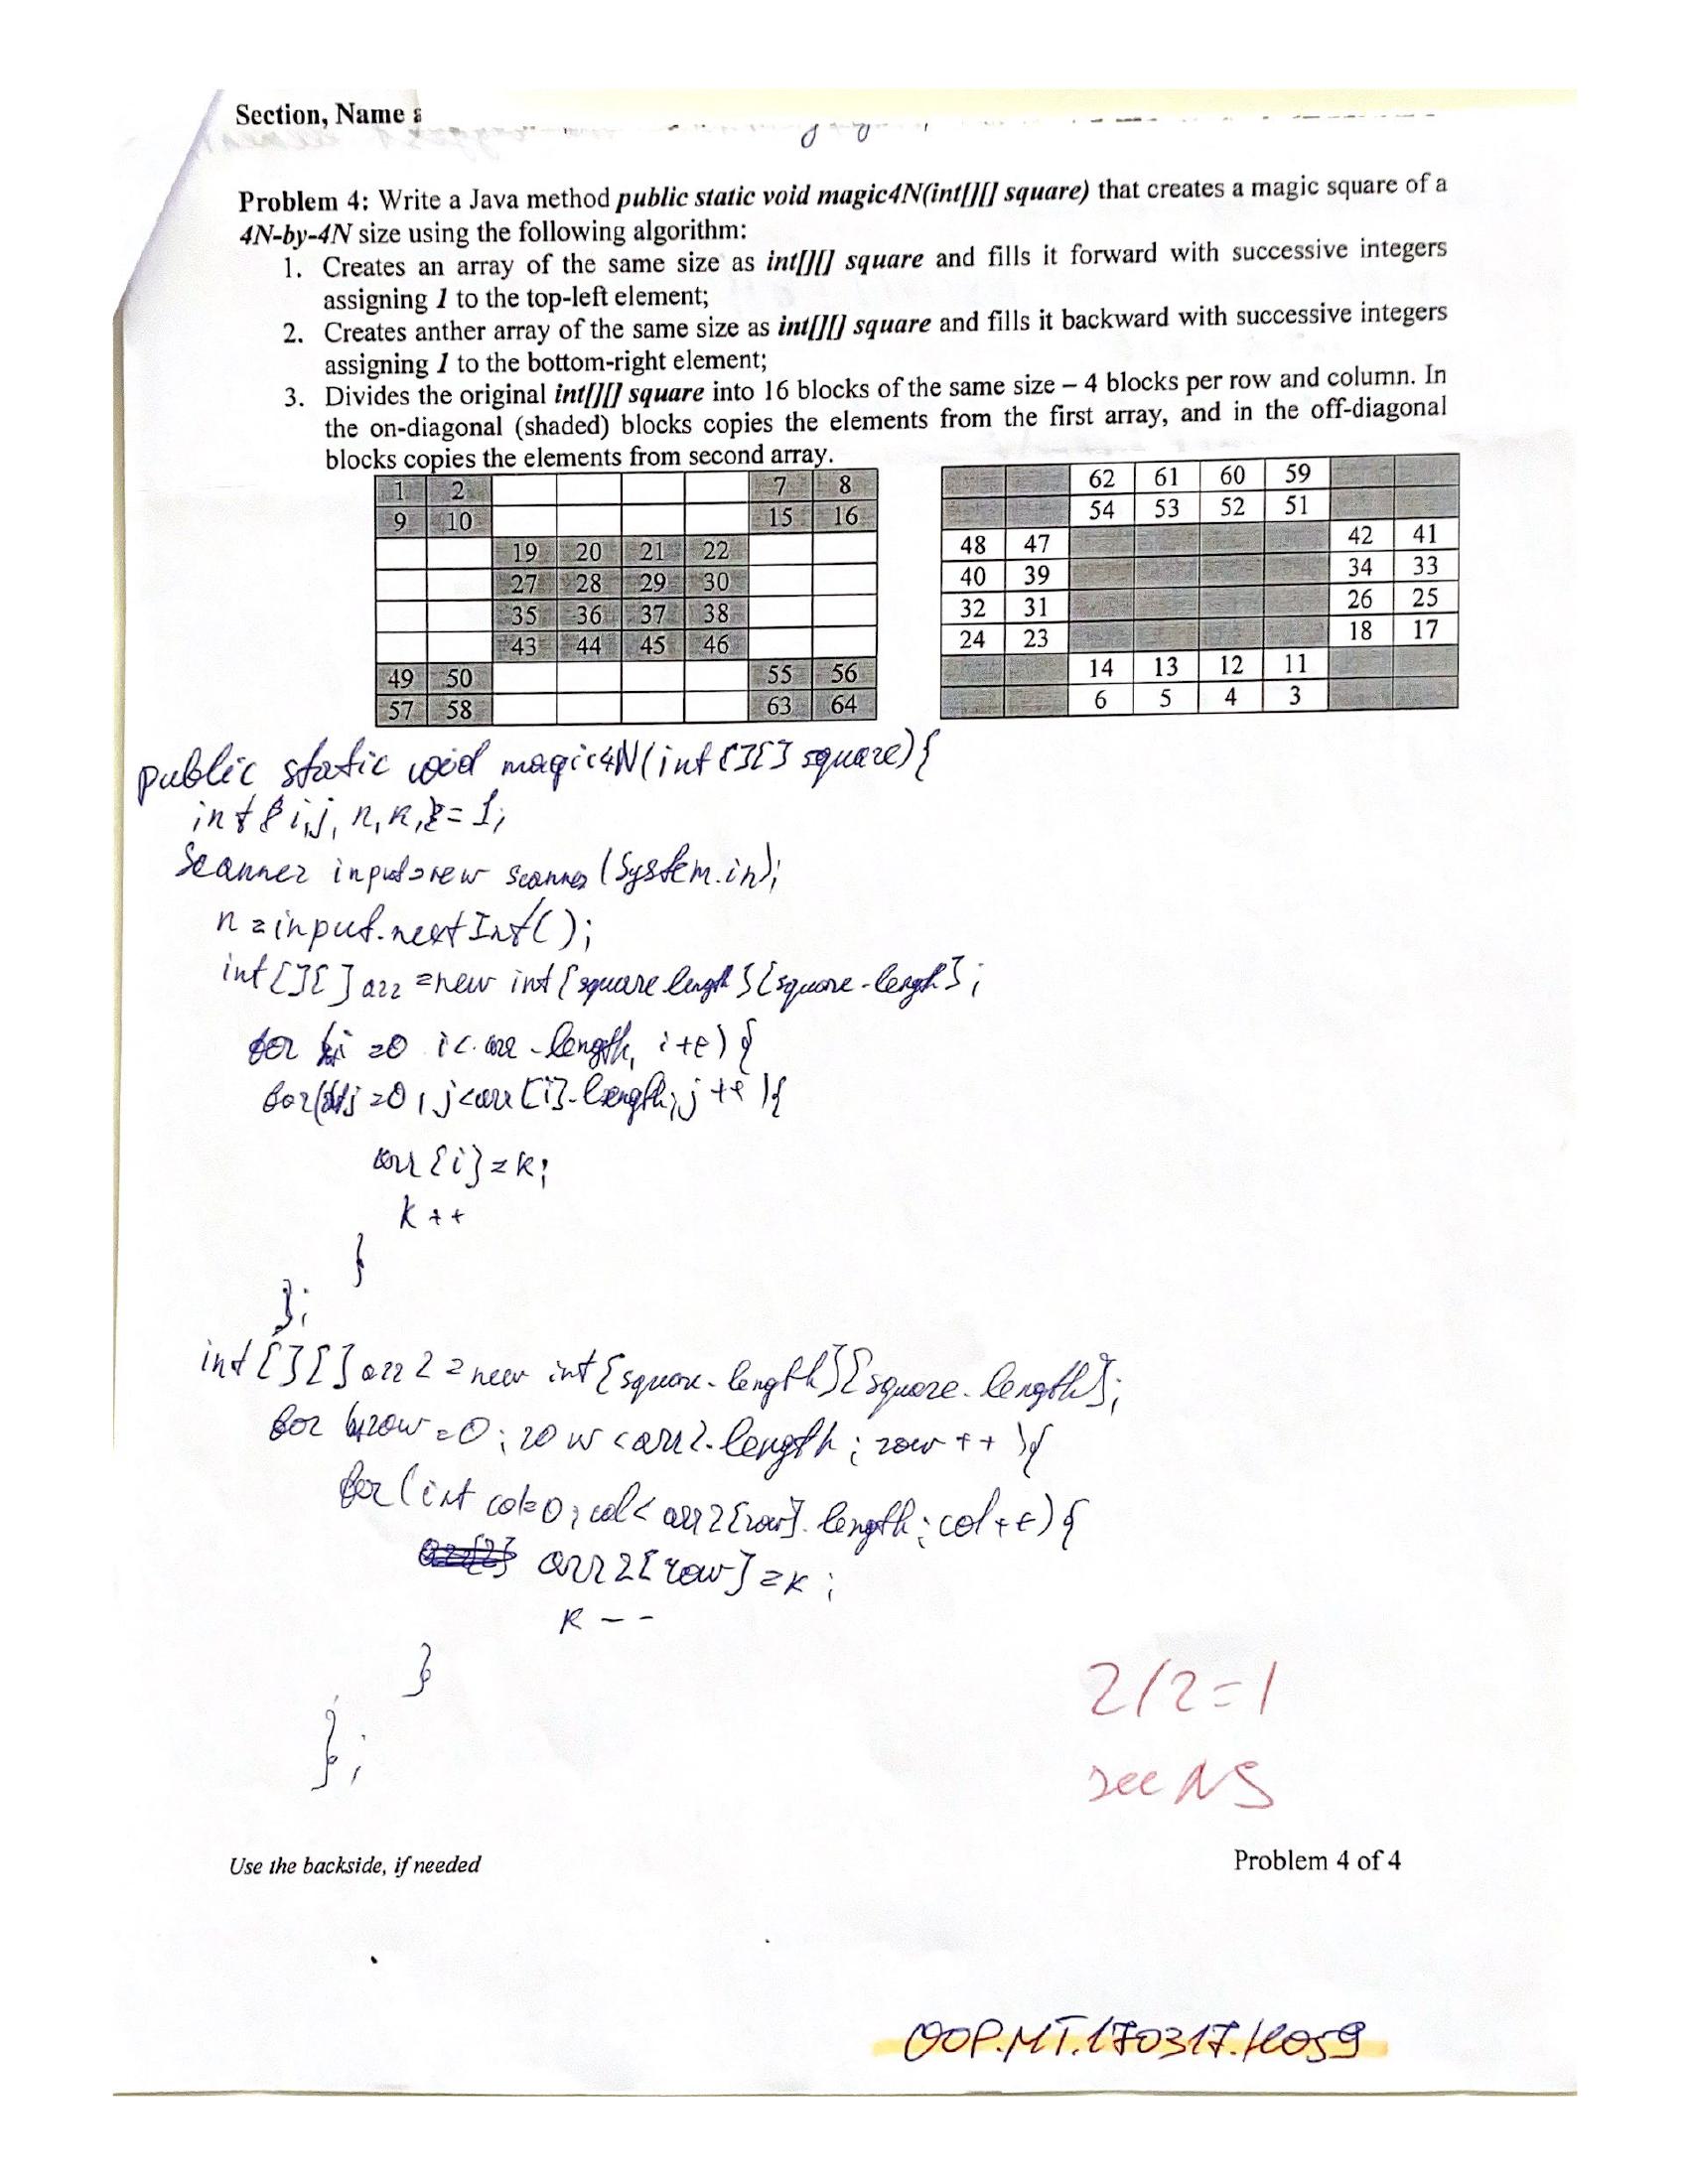 Section, Name
Problem 4: Write a Java method public static void magic4N(int[][] square) that creates a magic square of a
4N-by-4N size using the following algorithm:
1. Creates an array of the same size as int[][] square and fills it forward with successive integers
assigning 1 to the top-left element;
2. Creates anther array of the same size as int[][] square and fills it backward with successive integers
assigning 1 to the bottom-right element;
3. Divides the original int[][] square into 16 blocks of the same size – 4 blocks per row and column. In
the on-diagonal (shaded) blocks copies the elements from the first array, and in the off-diagonal
blocks copies the elements from second array.
1 2 7 8
9 10 15 16
19 20 21 22
27 28 29 30
35 36 37 38
43 44 45 46
49 50 55 56
57 58 63 64
62 61 60 59
54 53 52 51
48 47 42 41
40 39 34 33
32 31 26 25
24 23 18 17
14 13 12 11
6 5 4 3
public static void magic4N(int [][] square){
int i,j, n, k, = 1;
Scanner input = new Scanner (System.in);
n = input.nextInt();
int [][] arr = new int [square lengh] [square.lengh];
for i = 0 i < arr.length, i++) {
for( j = 0, j < arr[i].length; j ++ ){
arr [i] = k;
k ++
}
};
int [][] arr 2 = new int [square.length] [square.length];
for row = 0; row < arr2.length; row ++ ){
for (int col=0; col < arr2[row].length; col++) {
arr2[row] = k;
k --
}
};
2/2=1
see NS
Use the backside, if needed
Problem 4 of 4
OOP.MT.170317.K059